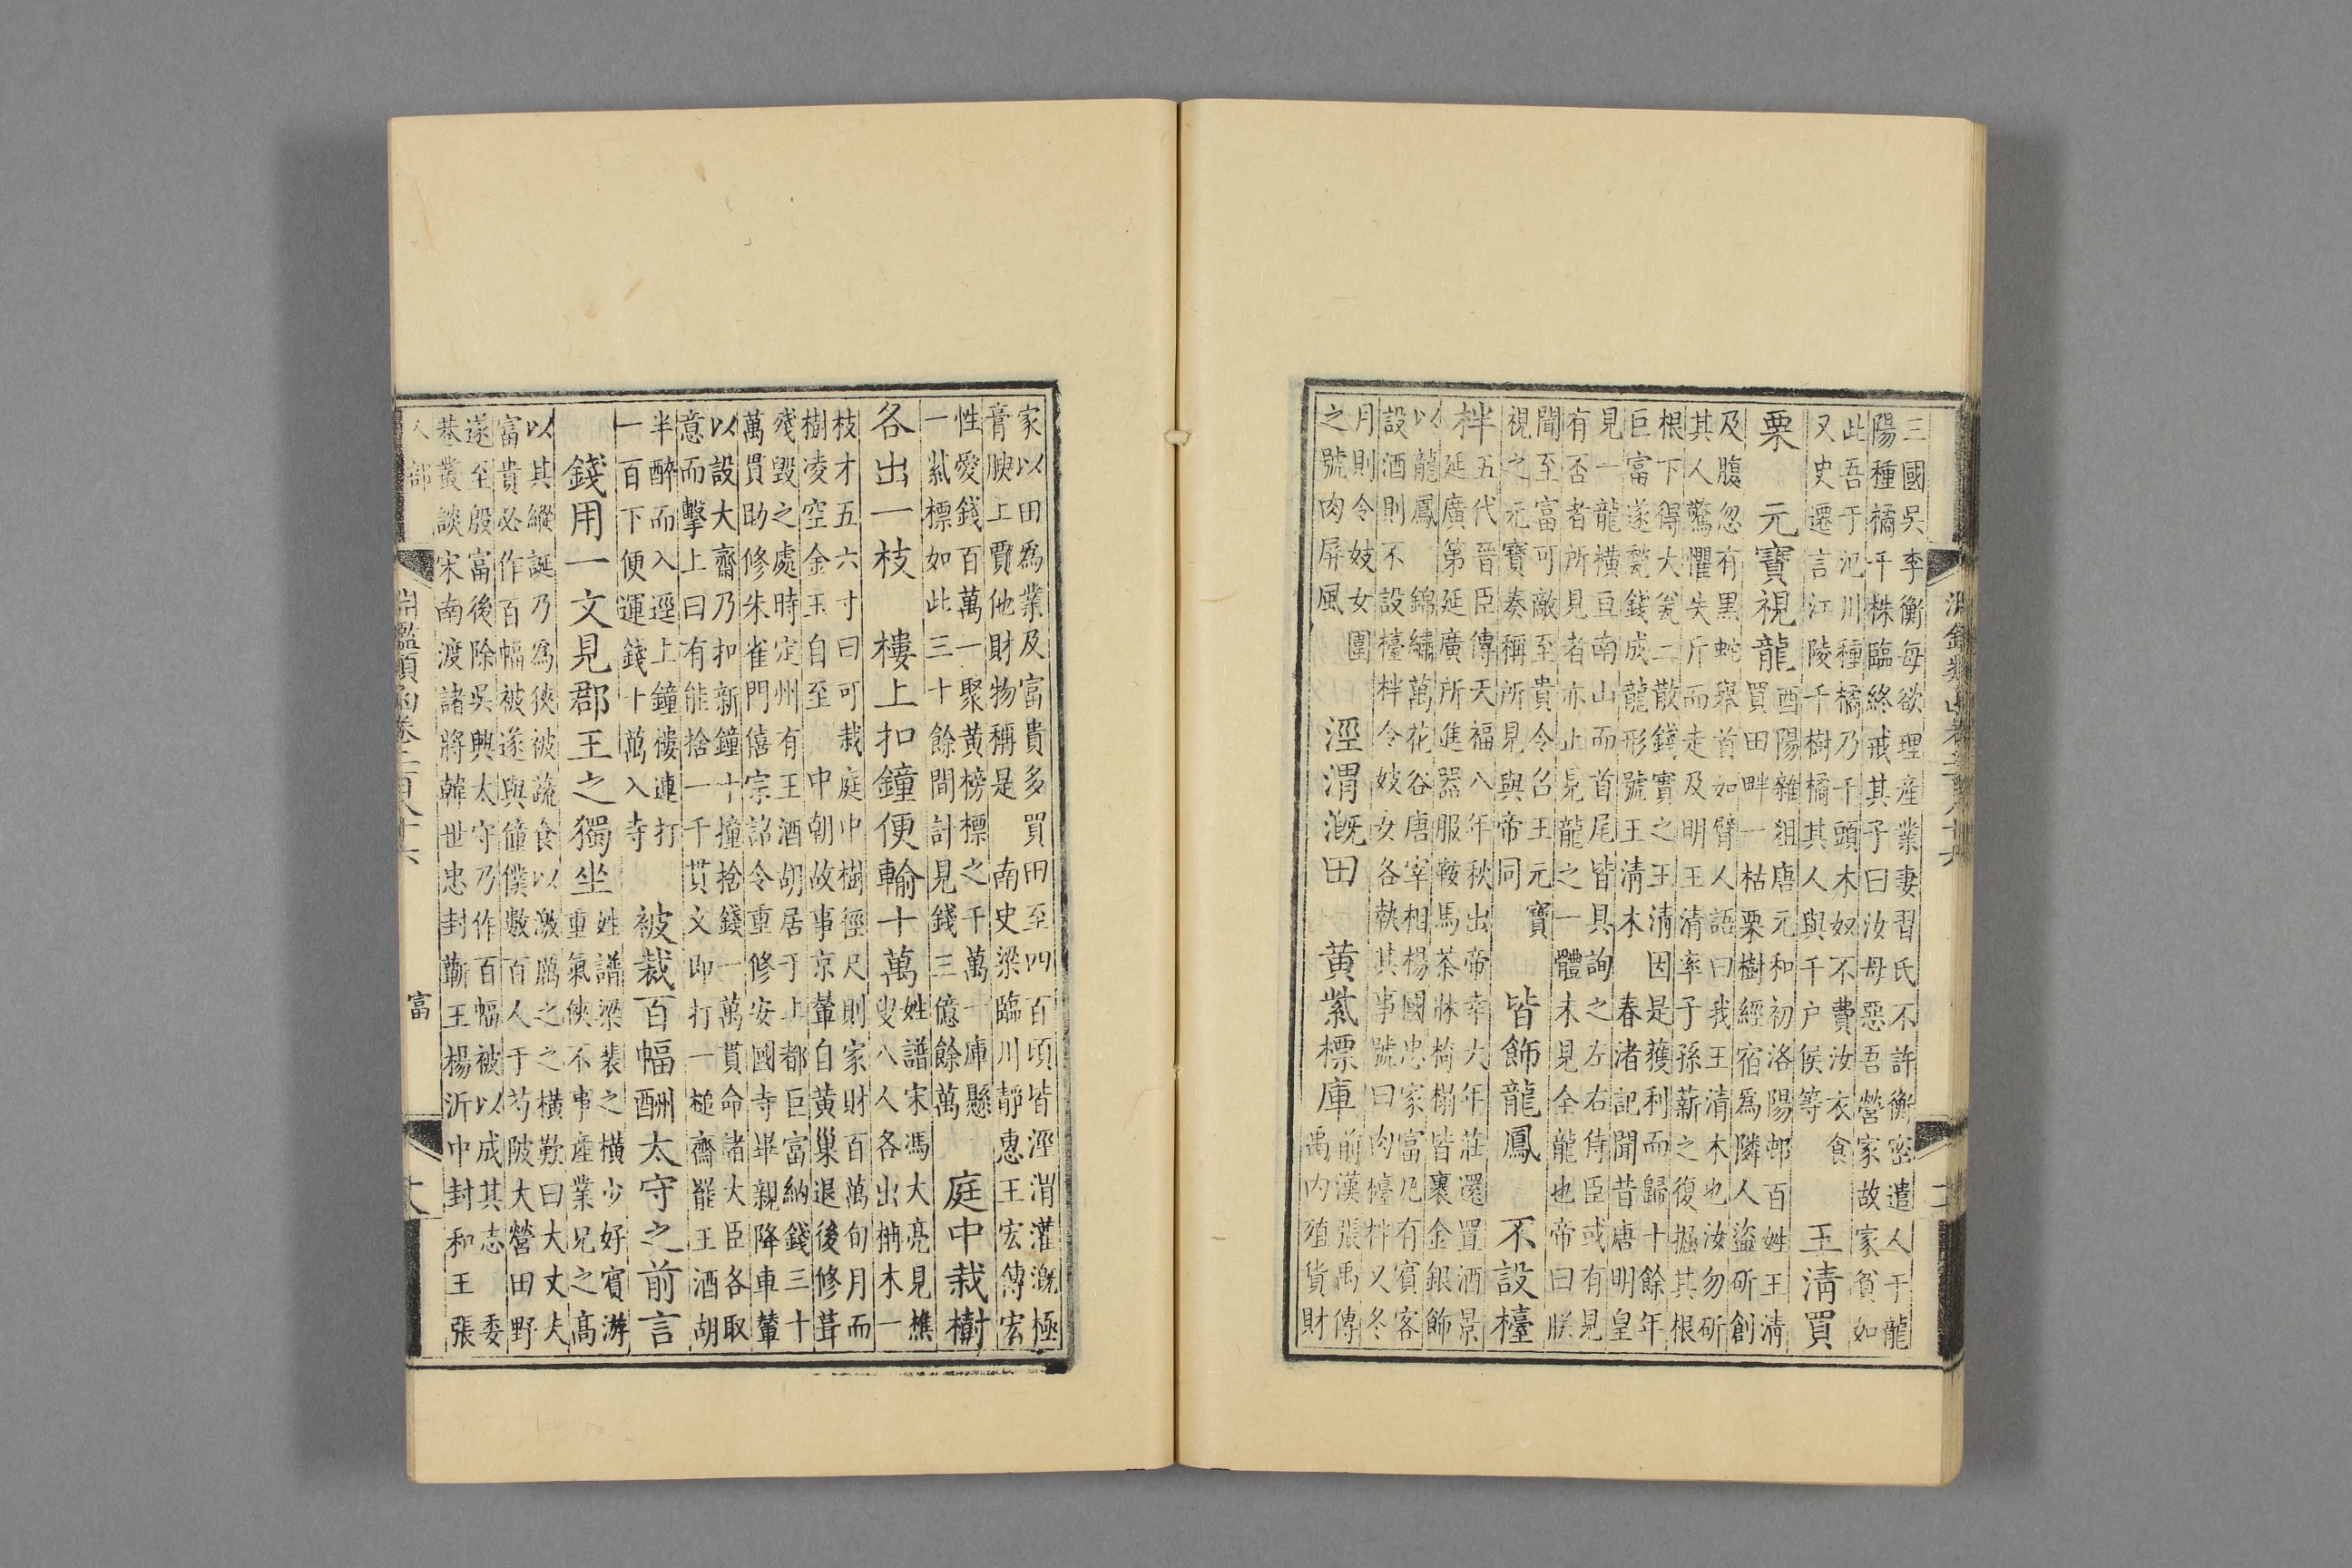 三國吳李衡每欲理產業妻習氏不許衡密遣人于龍
陽種橘千株臨終戒其子曰汝母惡吾營家故家貧如
此吾于氾川種橘乃千頭木奴不費汝衣食
又史遷言江陵千樹橘其人與千户侯等 王清買
栗 元寶視龍
酉陽雜俎唐元和初洛陽邨百姓王清
買田畔一枯栗樹經宿爲隣人盜斫創
及腹忽有黑蛇舉首如臂人語曰我王清木也汝勿斫
其人驚懼失斤而走及明王清率子孫薪之復掘其根
根下得大瓮二散錢實之王清因是獲利而歸十餘年
巨富遂甃錢成龍形號王清木 春渚記聞昔唐明皇
見一龍橫亘南山而首尾皆具詢之左右侍臣或有見
有否者所見者亦止見龍之一體未見全龍也帝曰朕
聞至富可敵至貴令召王元寶
視之元寶奏稱所見與帝同
皆飾龍鳳 不設檯
柈
五代晉臣傳天福八年秋出帝幸六年莊還置酒景
延廣第延廣所進器服鞍馬茶牀椅榻皆裹金銀飾
以龍鳳 錦繡萬花谷唐宰相楊國忠家富凡有賓客
設酒則不設檯柈令妓女各執其事號曰肉檯柈又冬
月則令妓女圍
之號肉屏風
涇渭漑田 黃紫標庫
前漢張禹傳
禹內殖貨財
淵鑑類函卷三百六十六
家以田爲業及富貴多買田至四百頃皆涇渭灌漑極
膏腴上賈他財物稱是 南史梁臨川靜惠王宏傳宏
性愛錢百萬一聚黃榜標之千萬一庫懸
一紫標如此三十餘間計見錢三億餘萬
庭中栽樹
各出一枝 樓上扣鐘便輸十萬
姓譜宋馮大亮見樵
叟八人各出柟木一
枝才五六寸曰可栽庭中樹徑尺則家財百萬旬月而
樹凌空金玉自至 中朝故事京輦自黃巢退後修葺
殘毀之處時定州有王酒胡居于上都巨富納錢三十
萬貫助修朱雀門僖宗詔令重修安國寺畢親降車輦
以設大齋乃扣新鐘十撞捨錢一萬貫命諸大臣各取
意而擊上曰有能捨一千貫文即打一槌齋罷王酒胡
半醉而入逕上鐘樓連打
一百下便運錢十萬入寺
被裁百幅酬太守之前言
錢用一文見郡王之獨坐
姓譜梁裴之橫少好賓游
重氣俠不事產業兄之高
以其縱誕乃爲狹被蔬食以激厲之之橫歎曰大丈夫
富貴必作百幅被遂與僮僕數百人于芍陂大營田野
遂至殷富後除吳興太守乃作百幅被以成其志 委
巷叢談宋南渡諸將韓世忠封蘄王楊沂中封和王張
人部 淵鑑類函卷三百六十六 富